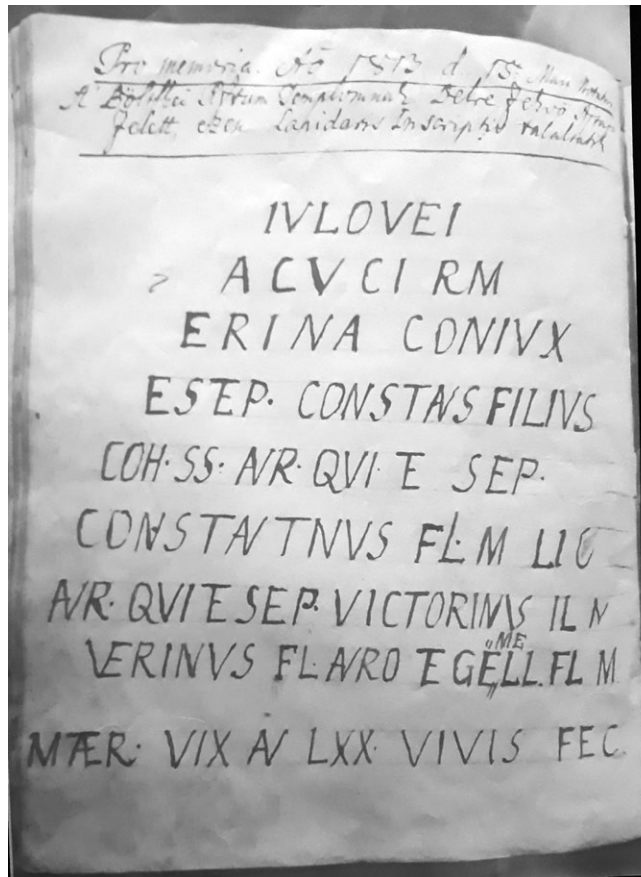 Pro memoria. Aō 1813 d. 15
A Bölskei Rōtum Templomnak Belre
felett, ezen Lapidaris Inscriptio találtatik
IVLOVEI
ACVCI RM
ERINA CONIVX
ESEP. CONSTANS FILIVS
COH. SS. AVR. QVI E SEP.
CONSTANTNVS FL. M LIC
AVR. QVI E SEP. VICTORINVS IL N
VERINVS FL AVRO E GELL. FL M
ME
MAER. VIX AN LXX. VIVIS FEC